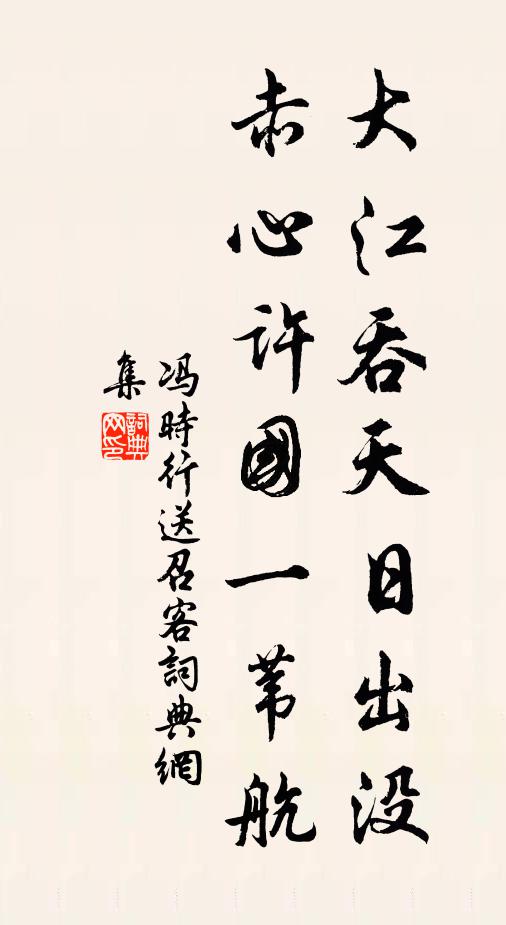 大江吞天日出没
赤心許國一苇航
冯時行送召客詞典網
集
詞典
网印